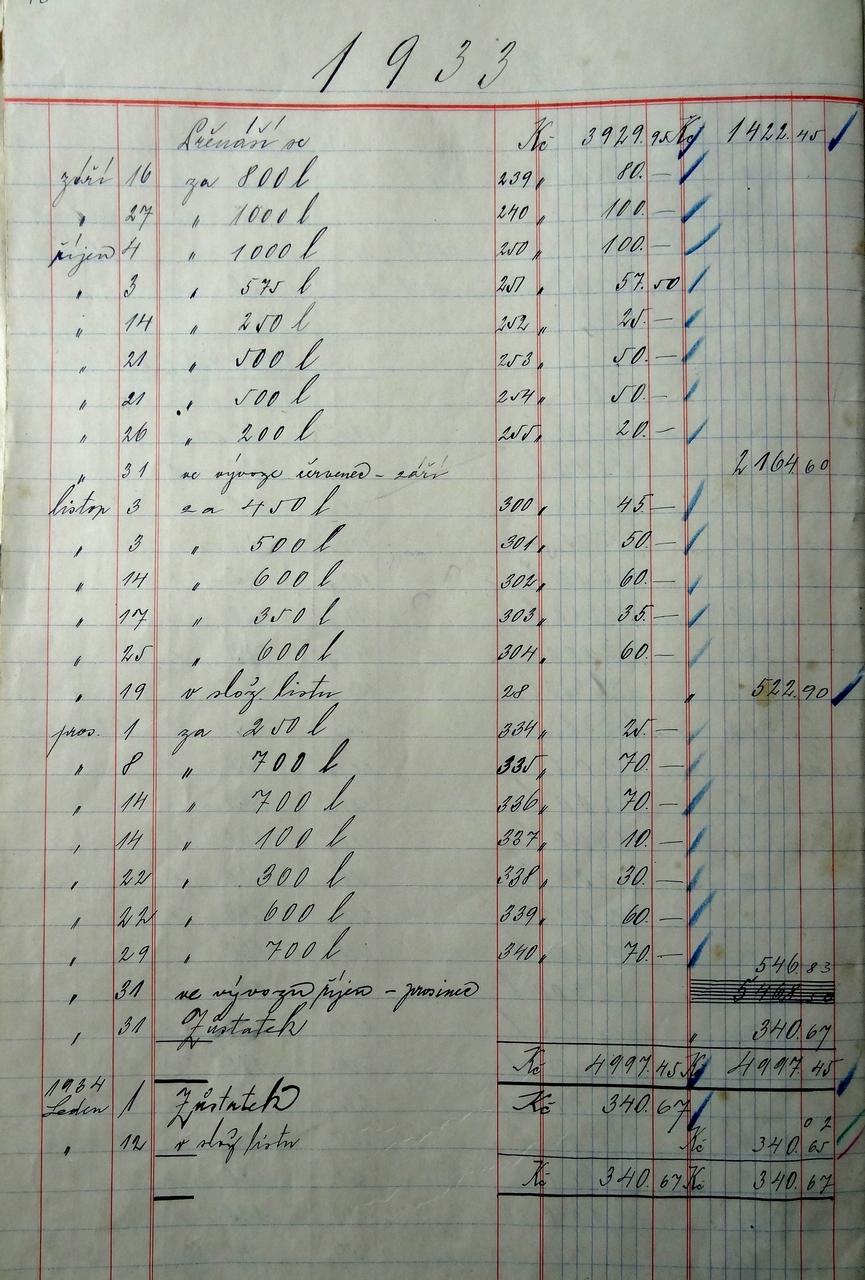 1933
Přenáší se Kč 3929.95 Kč 1422.45
září 16 za 800 l 239 „ 80.—
„ 27 „ 1000 l 240 „ 100.—
říjen 4 „ 1000 l 250 „ 100.—
„ 3 „ 575 l 251 „ 57.50
„ 14 „ 250 l 252 „ 25.—
„ 21 „ 500 l 253 „ 50.—
„ 21 „ 500 l 254 „ 50.—
„ 26 „ 200 l 255 „ 20.—
„ 31 ve vývoze červenec – září 2164.60
listop 3 za 450 l 300 „ 45.—
„ 3 „ 500 l 301 „ 50.—
„ 14 „ 600 l 302 „ 60.—
„ 17 „ 350 l 303 „ 35.—
„ 25 „ 600 l 304 „ 60.—
„ 19 v slož. listu 28 „ 522.90
pros. 1 za 250 l 334 „ 25.—
„ 8 „ 700 l 335 „ 70.—
„ 14 „ 700 l 336 „ 70.—
„ 14 „ 100 l 337 „ 10.—
„ 22 „ 300 l 338 „ 30.—
„ 22 „ 600 l 339 „ 60.—
„ 29 „ 700 l 340 „ 70.—
546.83
„ 31 ve vývozu říjen – prosinec
„ 31 Zůstatek „ 340.67
Kč 4997.45 Kč 4997.45
1934
Leden 1 Zůstatek Kč 340.67
02
„ 12 v slož listu Kč 340.65
Kč 340.67 Kč 340.67